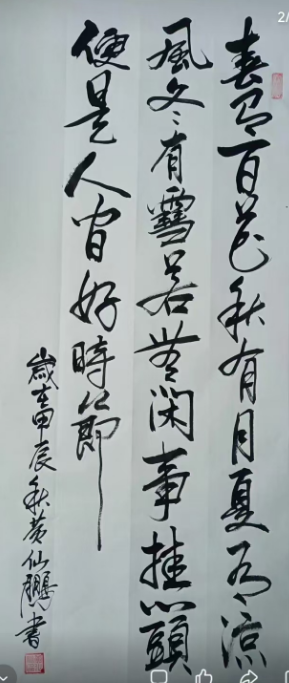 2/
春有百花秋有月夏有凉
風冬有雪若無闲事挂心頭
便是人间好時節
歲在甲辰秋黄仙鵬書